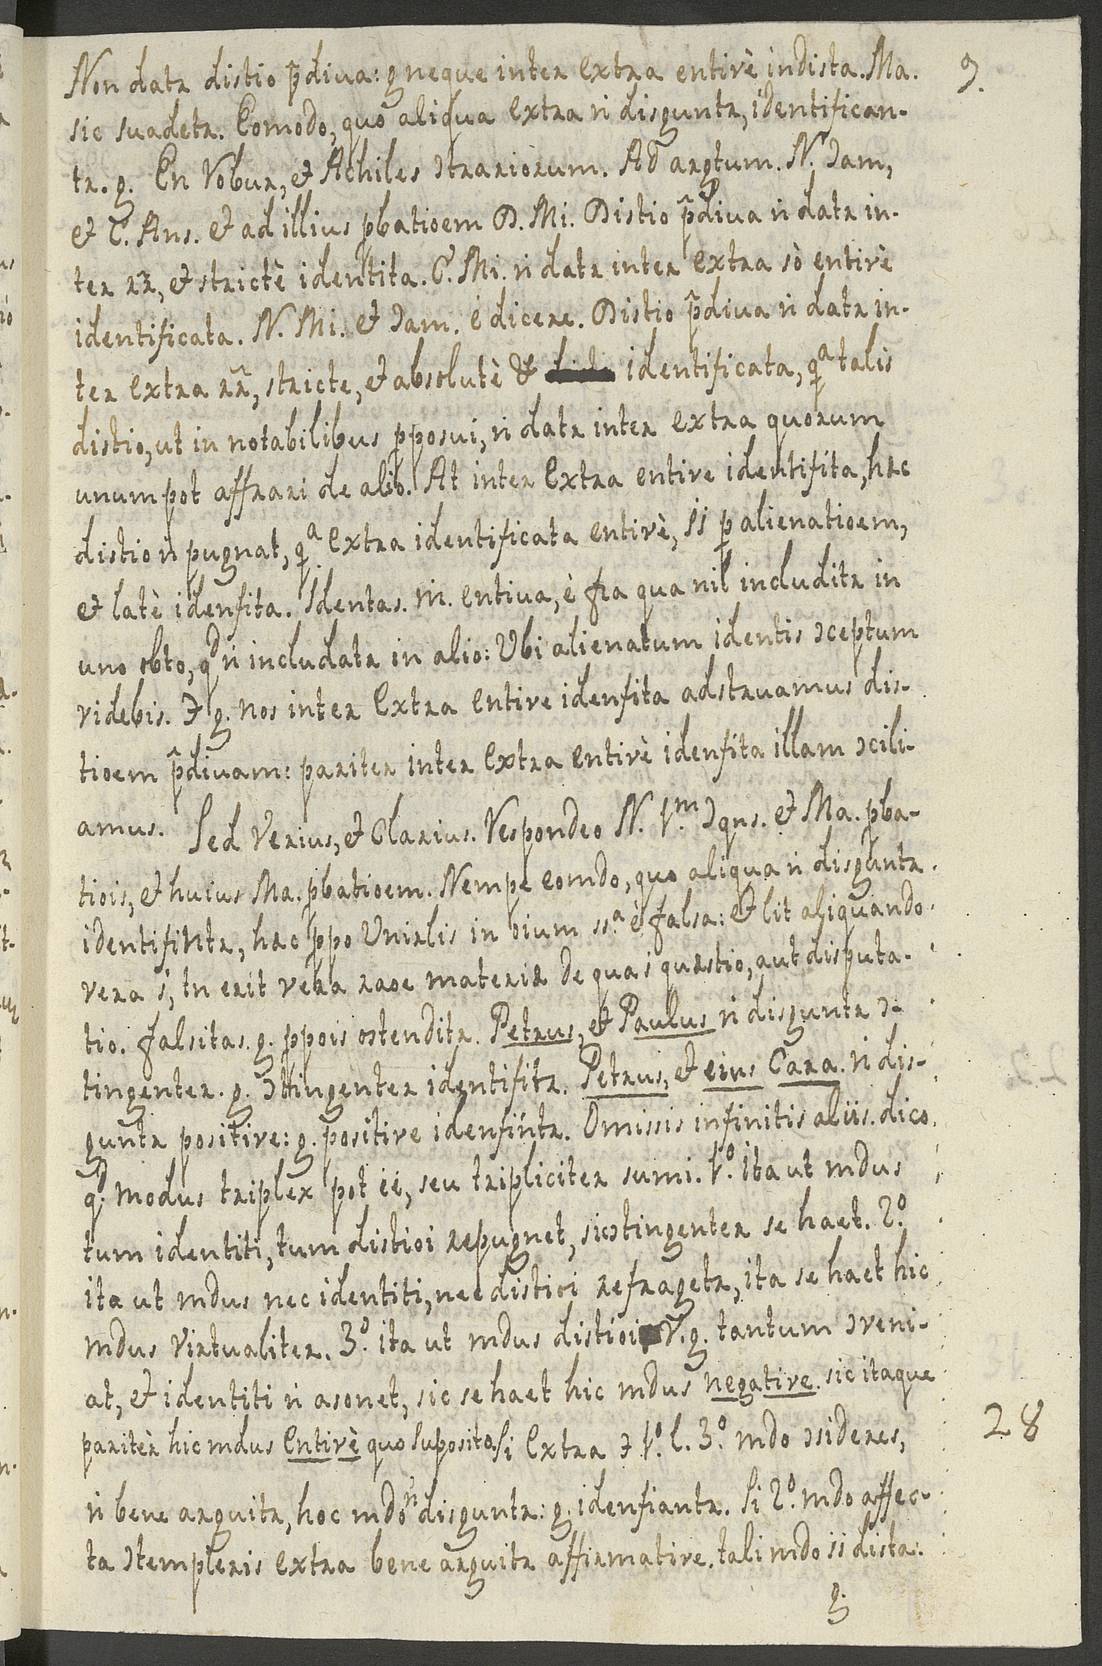 Non datr distio p̃diva: g neque inter extra entirè indista. Ma. 9.
sic suadetr. Eomodo, quo aliqua extra ñ disguntr, identifican-
tr. g. En Robur, et Achiles ɔtrariorum. Ad argtum. N. ɔam,
et C. Ans. et ad illius pbatioem D. Mi. Distio p̃diva ñ datr in-
ter rr̃, et strictè identita. C. Mi. ñ datr inter extra sò entirè
identificata. N. Mi. et ɔam. é dicere. Distio p̃diva ñ datr in-
ter extra rr̃, stricte, et absolutè & identificata, qª talis
distio, ut in notabilibus pposui, ñ datr inter extra quorum
unum pot affrari de alio. At inter extra entire identifita, hæc
distio ñ pugnat, qª extra identificata entirè, si p alienatioem,
et latè idenfita. Identas. m. entiva, è fra qua nil includitr in
uno obto, qd ñ includatr in alio: Ubi alienatum identis ɔceptum
videbis. ɔ g. nos inter extra entire idenfita adstruamus dis-
tioem p̃divam: pariter inter extra entirè idenfita illam ɔcili-
amus. Sed Verius, et Clarius. Respondeo N. 1.m ɔqns. et Ma. pba-
tiois, et huius Ma. pbatioem. Nempe eomdo, quo aliqua ñ disguntr.
identifintr, hæc ppo Unirlis in oium ssª è falsa: Et lit aliquando
vera s, tn erit vera raoe materiæ de qua s quæstio, aut disputa-
tio. falsitas. g. ppois ostenditr. Petrus, et Paulus ñ disguntr ɔ-
tingenter. g. ɔttingenter identifitr. Petrus, et eius Cara. ñ dis-
guntr positive: g. positive idenfintr. Omissis infinitis aliis. dico
qd. modus triplex pot eé, seu tripliciter sumi. 1.º ita ut mdus
tum identiti, tum distioi repugnet, sic ɔtingenter se haet. 2.º
ita ut mdus nec identiti, nec distioi refragetr, ita se haet hic
mdus virtualiter. 3.º ita ut mdus distioi v. g. tantum ɔveni-
at, et identiti ñ asonet, sic se haet hic mdus negative. sic itaque
pariter hic mdus Entirè quo supposita si extra ɔ 1.º l. 3.º mdo ɔsideres,
28
ñ bene arguitr, hoc mdo ñ disguntr: g. idenfiantr. Si 2.º mdo affec-
ta ɔtempleris extra bene arguitr affirmative. tali mdo si dista:
g.